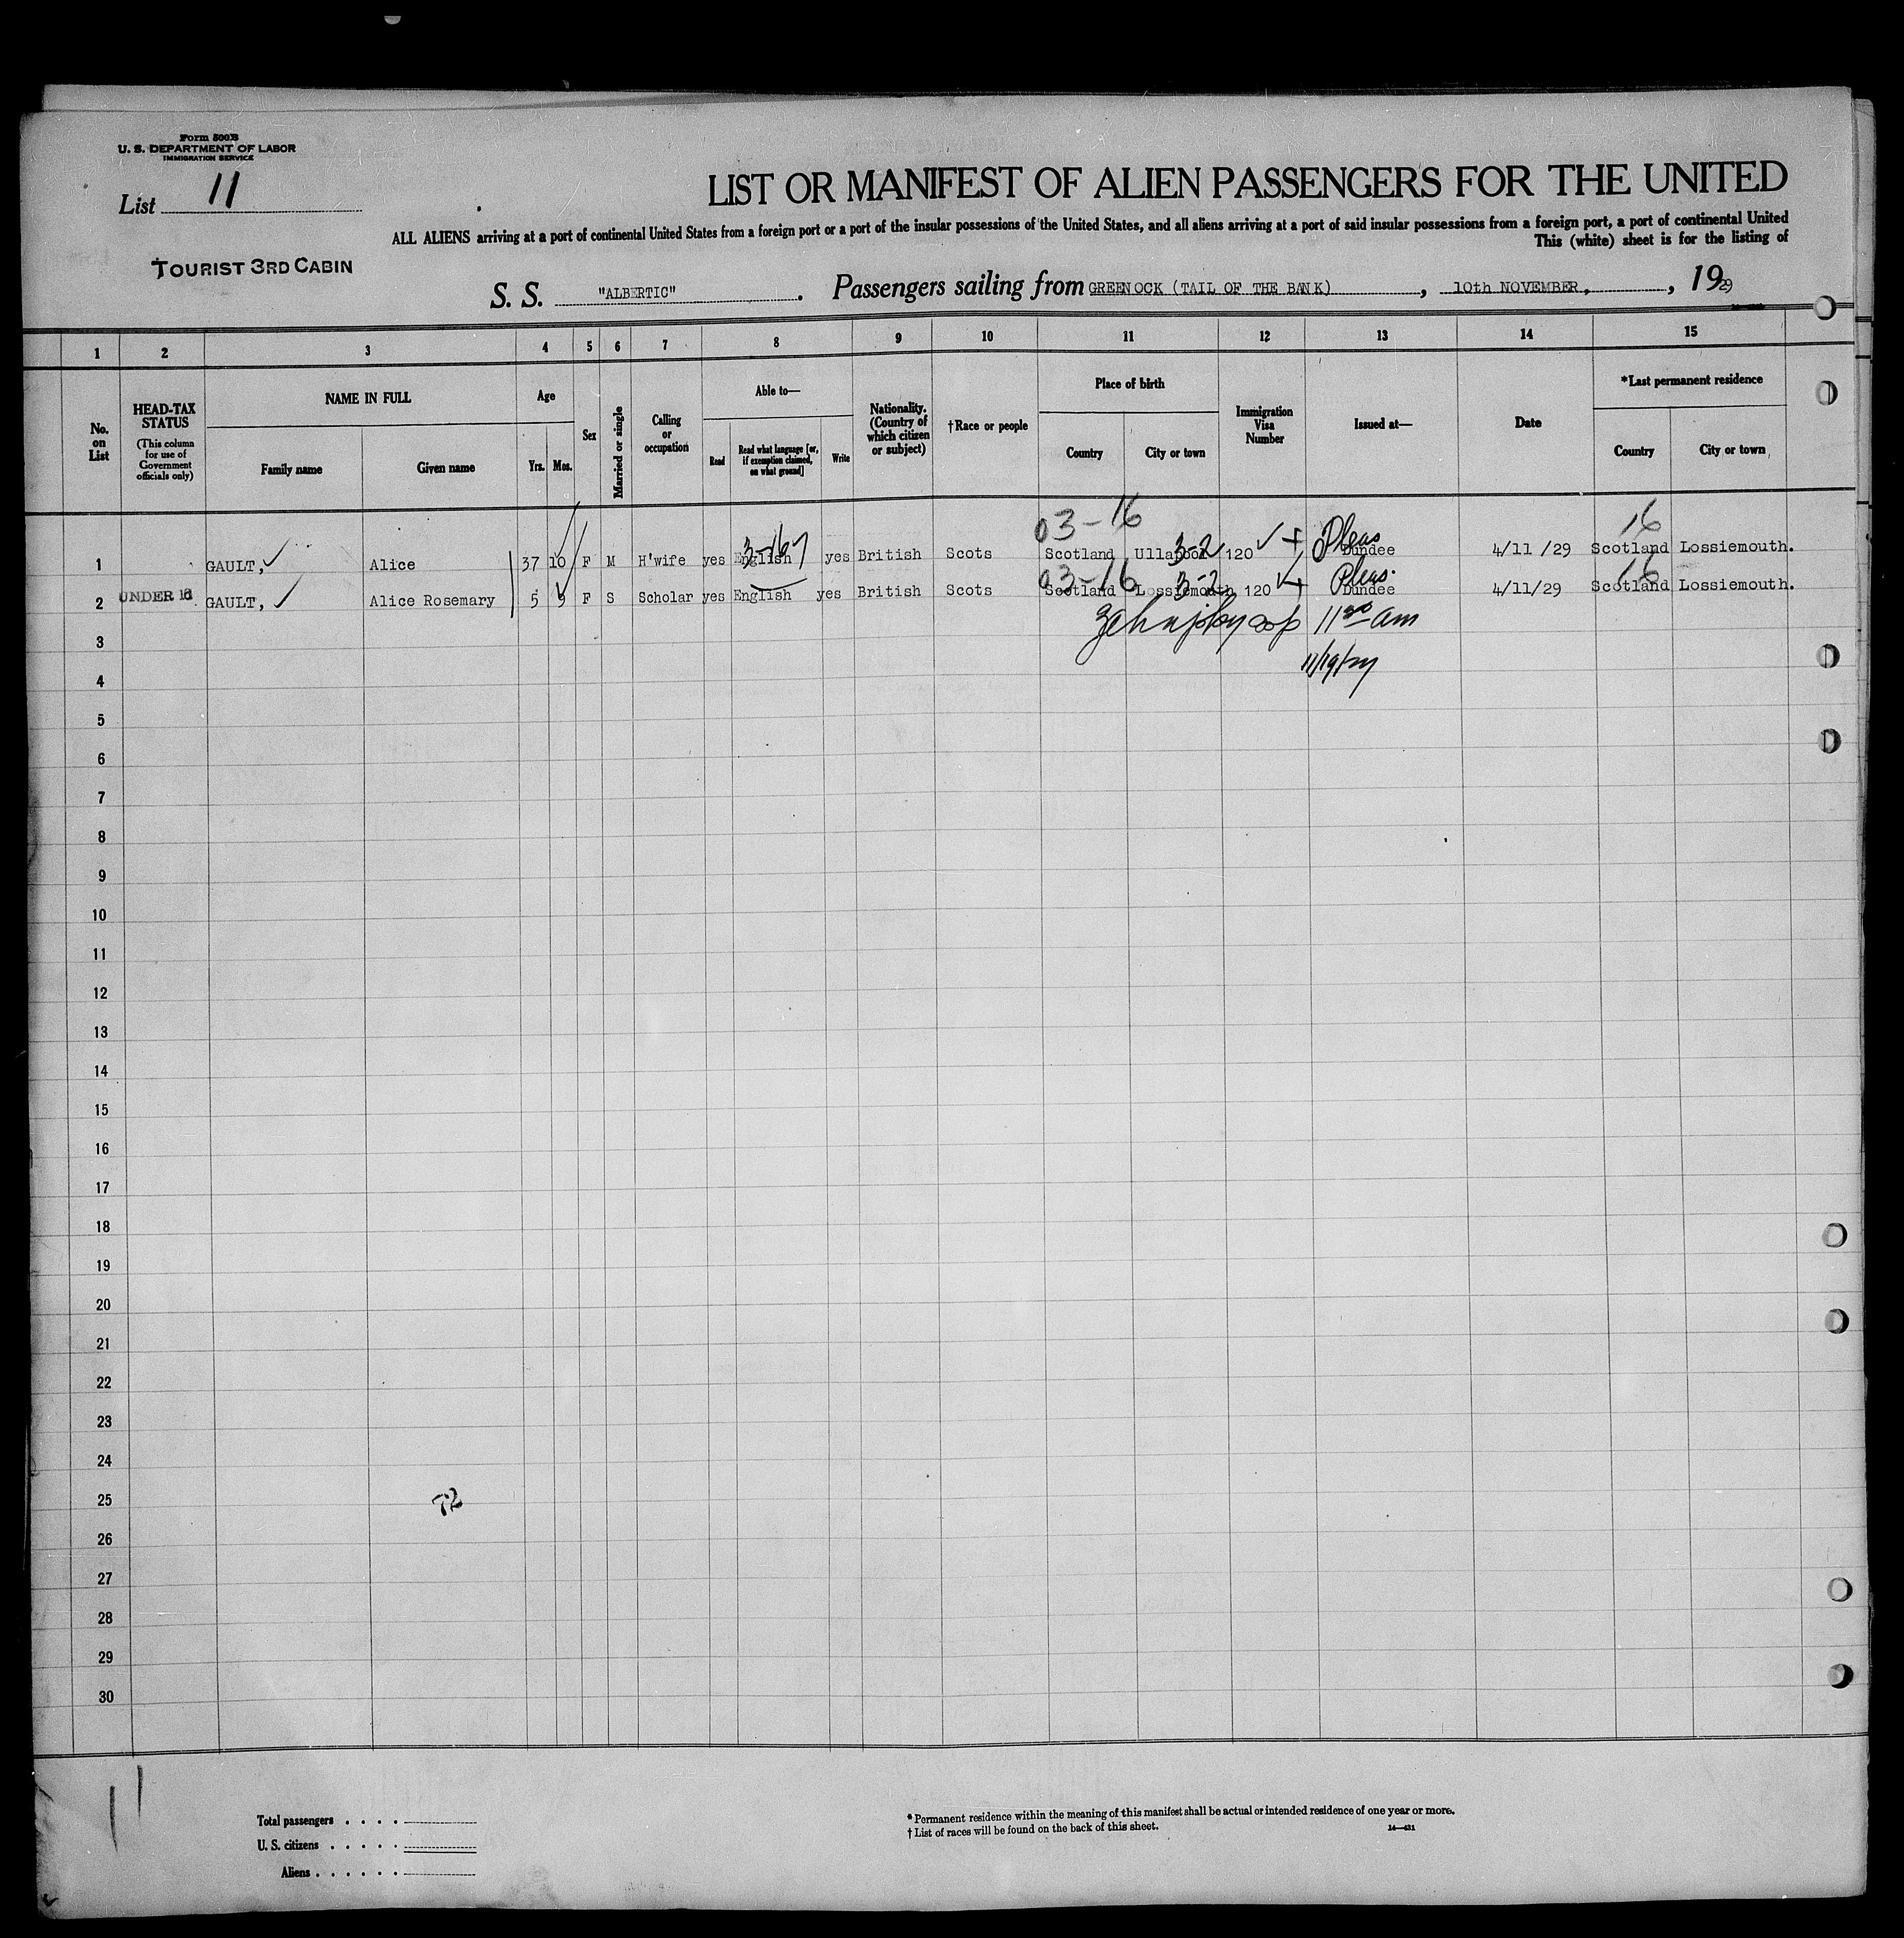 Form 500B
U. S. DEPARTMENT OF LABOR
IMMIGRATION SERVICE
List 11
LIST OR MANIFEST OF ALIEN PASSENGERS FOR THE UNITED
ALL ALIENS arriving at a port of continental United States from a foreign port or a port of the insular possessions of the United States, and all aliens arriving at a port of said insular possessions from a foreign port, a port of continental United
This (white) sheet is for the listing of
TOURIST 3RD CABIN
S. S. "ALBERTIC". Passengers sailing from GREENOCK (TAIL OF THE BANK), 10th NOVEMBER, , 1929
1 2 3 4 5 6 7 8 9 10 11 12 13 14 15
No. on List
HEAD-TAX STATUS
(This column for use of Government officials only)
NAME IN FULL
Family name
Given name
Age
Yrs.
Mos.
Sex
Married or single
Calling or occupation
Able to—
Read
Read what language [or, if exemption claimed, on what ground]
Write
Nationality. (Country of which citizen or subject)
†Race or people
Place of birth
Country
City or town
Immigration Visa Number
Issued at—
Date
*Last permanent residence
Country
City or town
03-16 16
3-167 3-2 Pleas
1 GAULT, Alice 37 10 F M H'wife yes English yes British Scots Scotland Ullapool 120 Dundee 4/11/29 Scotland Lossiemouth.
03-16 3-2 Pleas. 16
2 UNDER 16 GAULT, Alice Rosemary 5 9 F S Scholar yes English yes British Scots Scotland Lossiemouth 120 Dundee 4/11/29 Scotland Lossiemouth.
3
4
5
6
7
8
9
10
11
12
13
14
15
16
17
18
19
20
21
22
23
24
25
26
27
28
29
30
Total passengers . . . .
U. S. citizens . . . . .
Aliens . . . . . .
* Permanent residence within the meaning of this manifest shall be actual or intended residence of one year or more.
† List of races will be found on the back of this sheet.
14—431